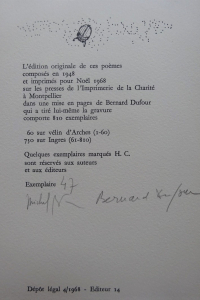 L'édition originale de ces poèmes
composés en 1948
et imprimés pour Noël 1968
sur les presses de l'Imprimerie de la Charité
à Montpellier
dans une mise en pages de Bernard Dufour
qui a tiré lui-même la gravure
comporte 810 exemplaires
60 sur vélin d'Arches (1-60)
750 sur Ingres (61-810)
Quelques exemplaires marqués H. C.
sont réservés aux auteurs
et aux éditeurs
Exemplaire 47
Michel Bernard Dufour
Dépôt légal 4/1968 - Editeur 14